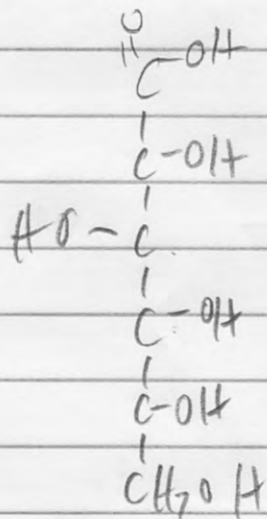 O
C-OH
C-OH
HO-C
C-OH
C-OH
CH₂OH